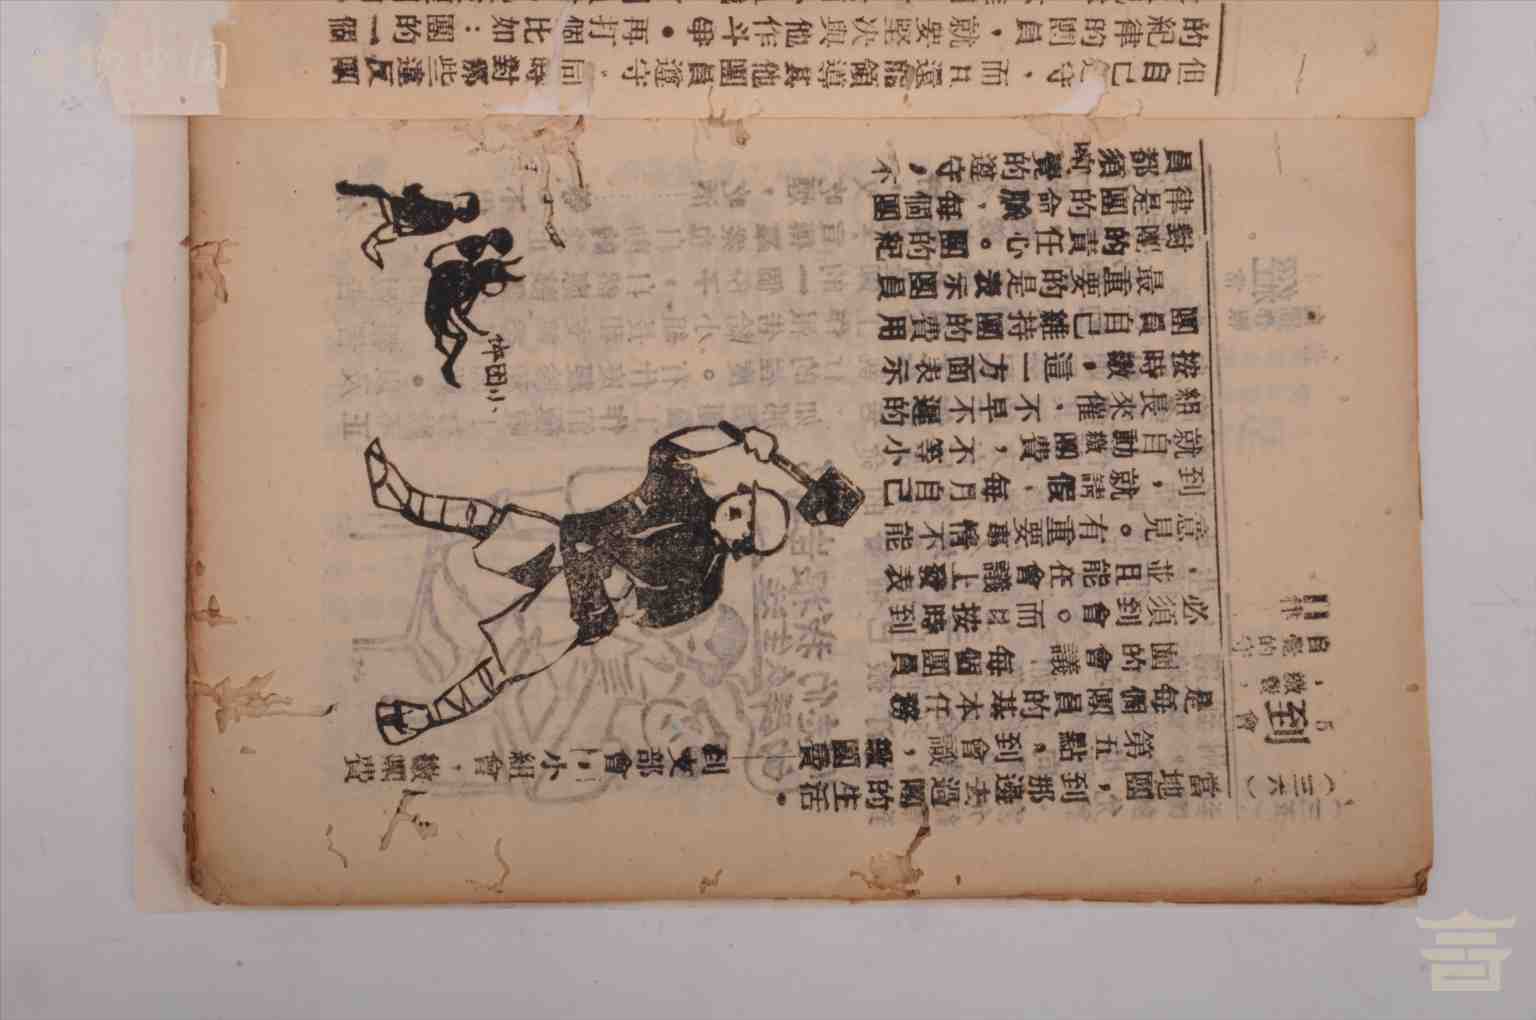 (三六)
5
到會,繳費,
自覺的守
律
當地團,到那邊去過團的生活。
第五點,到會議,繳團費——到支部會,小組會,繳團費
是每個團員的基本任務
團的會議 每個團員
必須到會。而且按時到
,並且能在會議上發表
意見。有重要事情不能
到,就請假,每月自己
就自動繳團費,不等小
組長來催,不早不遲的
按時繳,這一方面表示
團員自己維持團的費用
最重要的是表示團員
對團的責任心。團的紀
律是團的命脈,每個團
員都須自覺的遵守,不
但自己遵守,而且還能領導其他團員遵守,同時對那些違反團
的紀律的團員,就要堅決與他作斗爭。再打個比如:團的一個